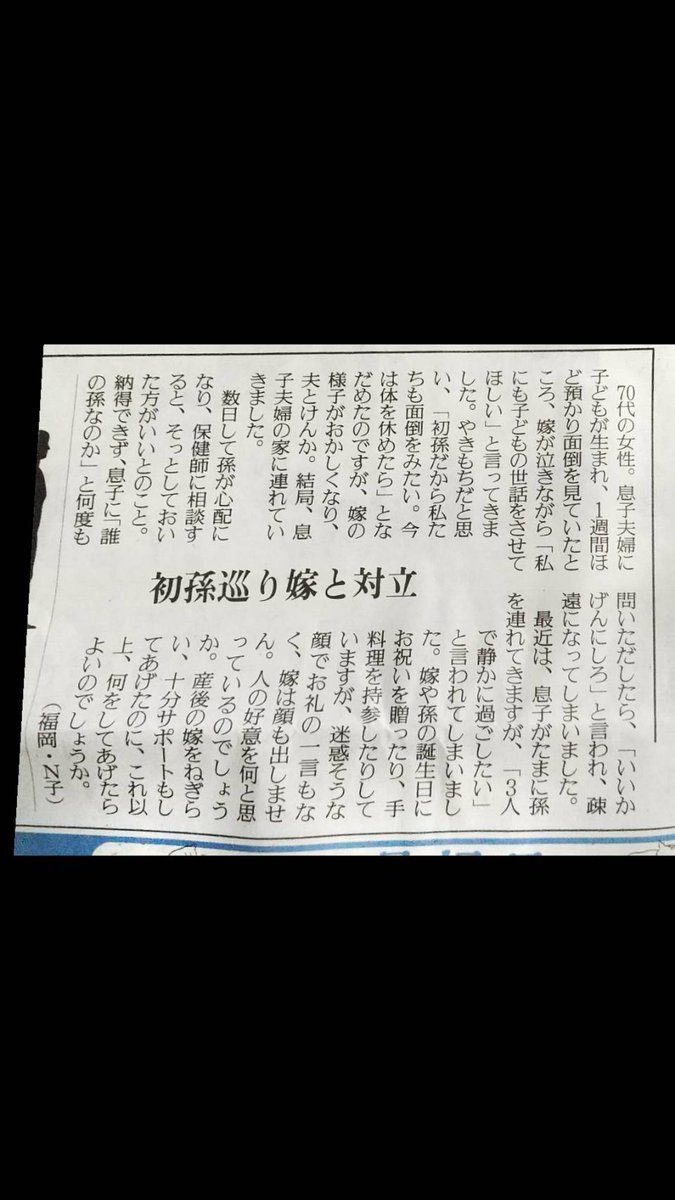 初孫巡り嫁と対立
70代の女性。息子夫婦に
子どもが生まれ、1週間ほ
ど預かり面倒を見ていたと
ころ、嫁が泣きながら「私
にも子どもの世話をさせて
ほしい」と言ってきま
した。やきもちだと思
い、「初孫だから私た
ちも面倒をみたい。今
は体を休めたら」とな
だめたのですが、嫁の
様子がおかしくなり、
夫とけんか。結局、息
子夫婦の家に連れてい
きました。
数日して孫が心配に
なり、保健師に相談す
ると、そっとしておい
た方がいいとのこと。
納得できず、息子に「誰
の孫なのか」と何度も
問いただしたら、「いいか
げんにしろ」と言われ、疎
遠になってしまいました。
最近は、息子がたまに孫
を連れてきますが、「3人
で静かに過ごしたい」
と言われてしまいまし
た。嫁や孫の誕生日に
お祝いを贈ったり、手
料理を持参したりして
いますが、迷惑そうな
顔でお礼の一言もな
く、嫁は顔も出しませ
ん。人の好意を何と思
っているのでしょう
か。産後の嫁をねぎら
い、十分サポートもし
てあげたのに、これ以
上、何をしてあげたら
よいのでしょうか。
（福岡・N子）